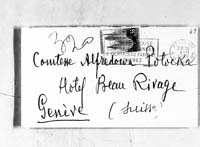 320
Comtesse Alfredowa Potocka
Hôtel Beau Rivage
Genève (Suisse)